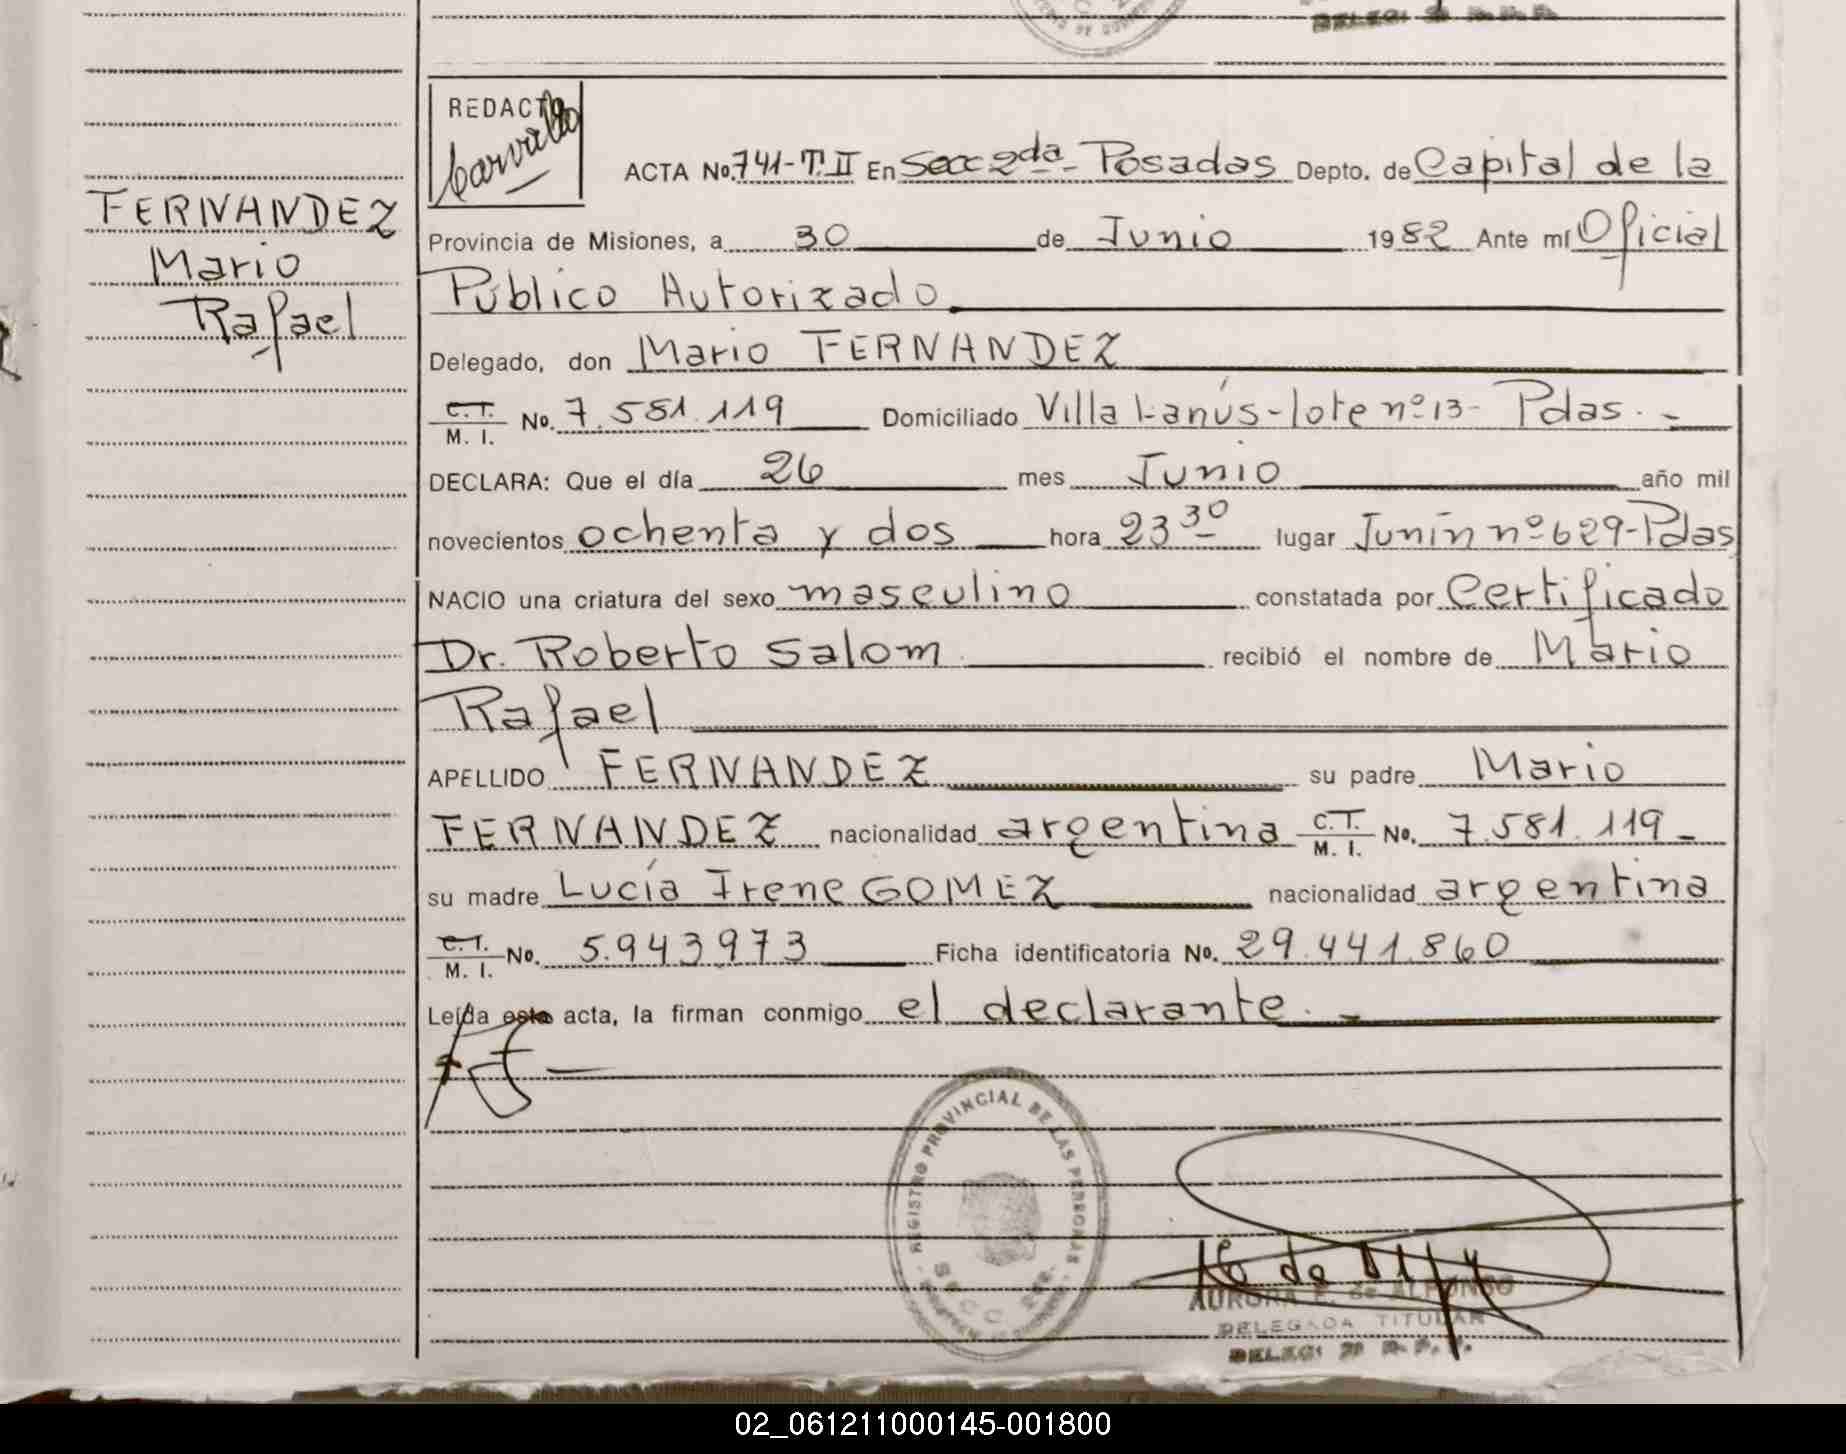 FERNANDEZ
Mario
Rafael
REDACTO
Carvallo
ACTA No. 741-T.II En Secc 2da- Posadas Depto. de Capital de la
Provincia de Misiones, a 30 de Junio 1982 Ante mí Oficial
Público Autorizado
Delegado, don Mario FERNANDEZ
C.T. M. I. No. 7.581.119 Domiciliado Villa Lanús-lote nº 13- Pdas.-
DECLARA: Que el día 26 mes Junio año mil
novecientos ochenta y dos hora 23 30 lugar Junín nº 629-Pdas
NACIO una criatura del sexo masculino constatada por Certificado
Dr. Roberto Salom recibió el nombre de Mario
Rafael
APELLIDO FERNANDEZ su padre Mario
FERNANDEZ nacionalidad argentina C.T. M. I. No. 7.581.119-
su madre Lucía Irene GOMEZ nacionalidad argentina
C.T. M. I. No. 5.943973 Ficha identificatoria No. 29.441.860
Leída esta acta, la firman conmigo el declarante.-
REGISTRO PROVINCIAL DE LAS PERSONAS
SECC 2da.
AURORA E. de ALFONSO
DELEGADA TITULAR
DELEG: 2ª R.P.P.
02_061211000145-001800